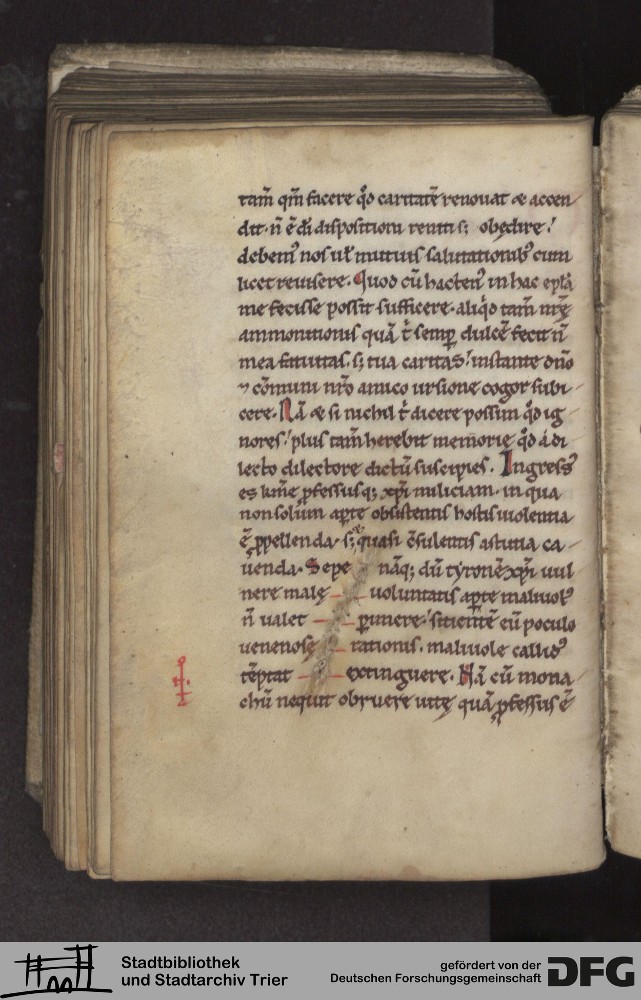 tam̄ qm̄ facere qđ caritatē renouat & accen
dit. n̄ ē di dispositioni reniti s; obędire.
debem⁹ nos uł mutuis salutationib⁹ cum
licet reuisere. Quod cū hacten⁹ in hac epła
me fecisse possit sufficere. aliqđ tam̄ nr̄ę
ammonitionis quā t̄ semp̄ dulcē fecit n̄
mea fatuitas. s; tua caritas. instante dn̄o
⁊ cōmuni nr̄o amico ursione cogor subi
cere. Nā & si nichil t̄ dicere possim qđ ig
nores. plus tam̄ herebit memorie qđ a di
lecto dilectore dictū suscipies. Ingress⁹
es kme p̄fessusq; xp̄i miliciam. in qua
non solum aperte obsistentis hostis uiolentia
ē p̄pellenda. s; quasi c̄sulentis astutia ca
uenda. Sepe nāq; dū tyronē xp̄i uul
nere malę uoluntatis aperte maliuol⁹
n̄ ualet perimere. sitientē eū poculo
uenenosę rationis. maliuole callid⁹
tēptat extinguere. Nā cū mona
chū nequit obruere uitę quā p̄fessus ē
Stadtbibliothek
und Stadtarchiv Trier
gefördert von der
Deutschen Forschungsgemeinschaft
DFG